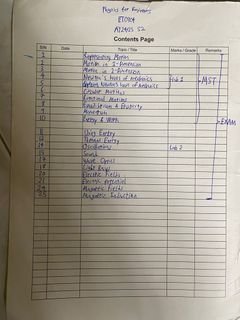 Physics for Engineers
Contents Page
S/N Date Topic / Title Marks / Grade Remarks
1 Representing Motion
2 Motion in 1-Dimension
3 Motion in 2-Dimension
4 Newton's laws of Mechanics Lab 1 MST
5 Newton's laws of Mechanics
6 Circular Motion
7 Rotational Motion
8 Equilibrium & Elasticity
9 Momentum
10 Energy & Work
EXAM
Thermal Energy
Oscillations Lab 2
Sound
Wave Optics
Light Rays
Electric Fields
Electric Potential
Magnetic Fields
Magnetic Induction